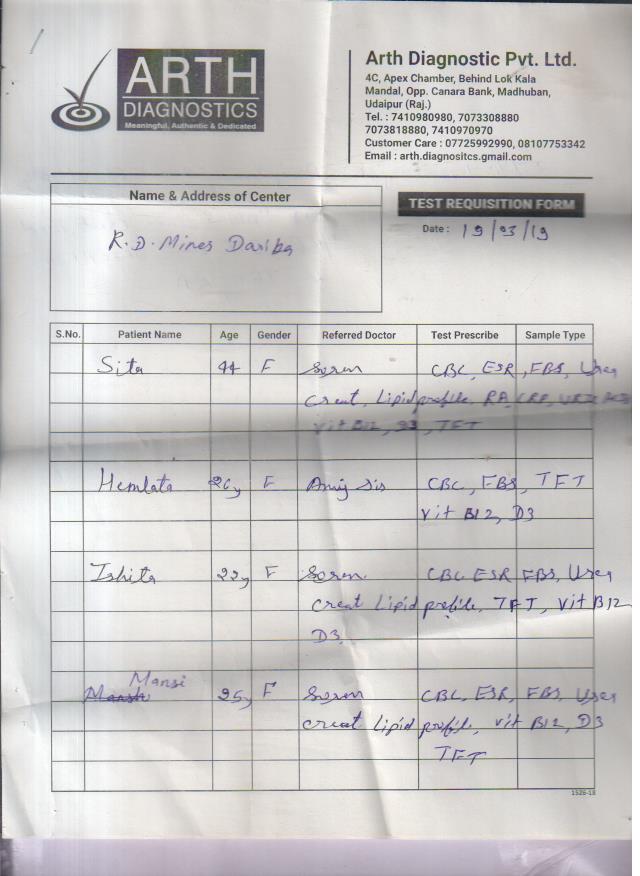 ARTH
DIAGNOSTICS
Meaningful, Authentic & Dedicated
Arth Diagnostic Pvt. Ltd.
4C, Apex Chamber, Behind Lok Kala
Mandal, Opp. Canara Bank, Madhuban,
Udaipur (Raj.)
Tel. : 7410980980, 7073308880
7073818880, 7410970970
Customer Care : 07725992990, 08107753342
Email : arth.diagnositcs.gmail.com
Name & Address of Center
R.D. Mines Dariba
TEST REQUISITION FORM
Date : 19/03/19
S.No. Patient Name Age Gender Referred Doctor Test Prescribe Sample Type
Sita 44 F Soren CBC, ESR, FBS, Urea
Creat, Lipid profile, RA, CRP,
Vit B12, D3, TFT
Hemlata 26y F CBC, FBS, TFT
Vit B12, D3
Ishita 22y F Soren CBC ESR FBS, Urea
Creat Lipid profile, TFT, Vit B12
D3
Mansi
25y F Soren CBC, ESR, FBS, Urea
creat Lipid profile, Vit B12, D3
TFT
1526-18